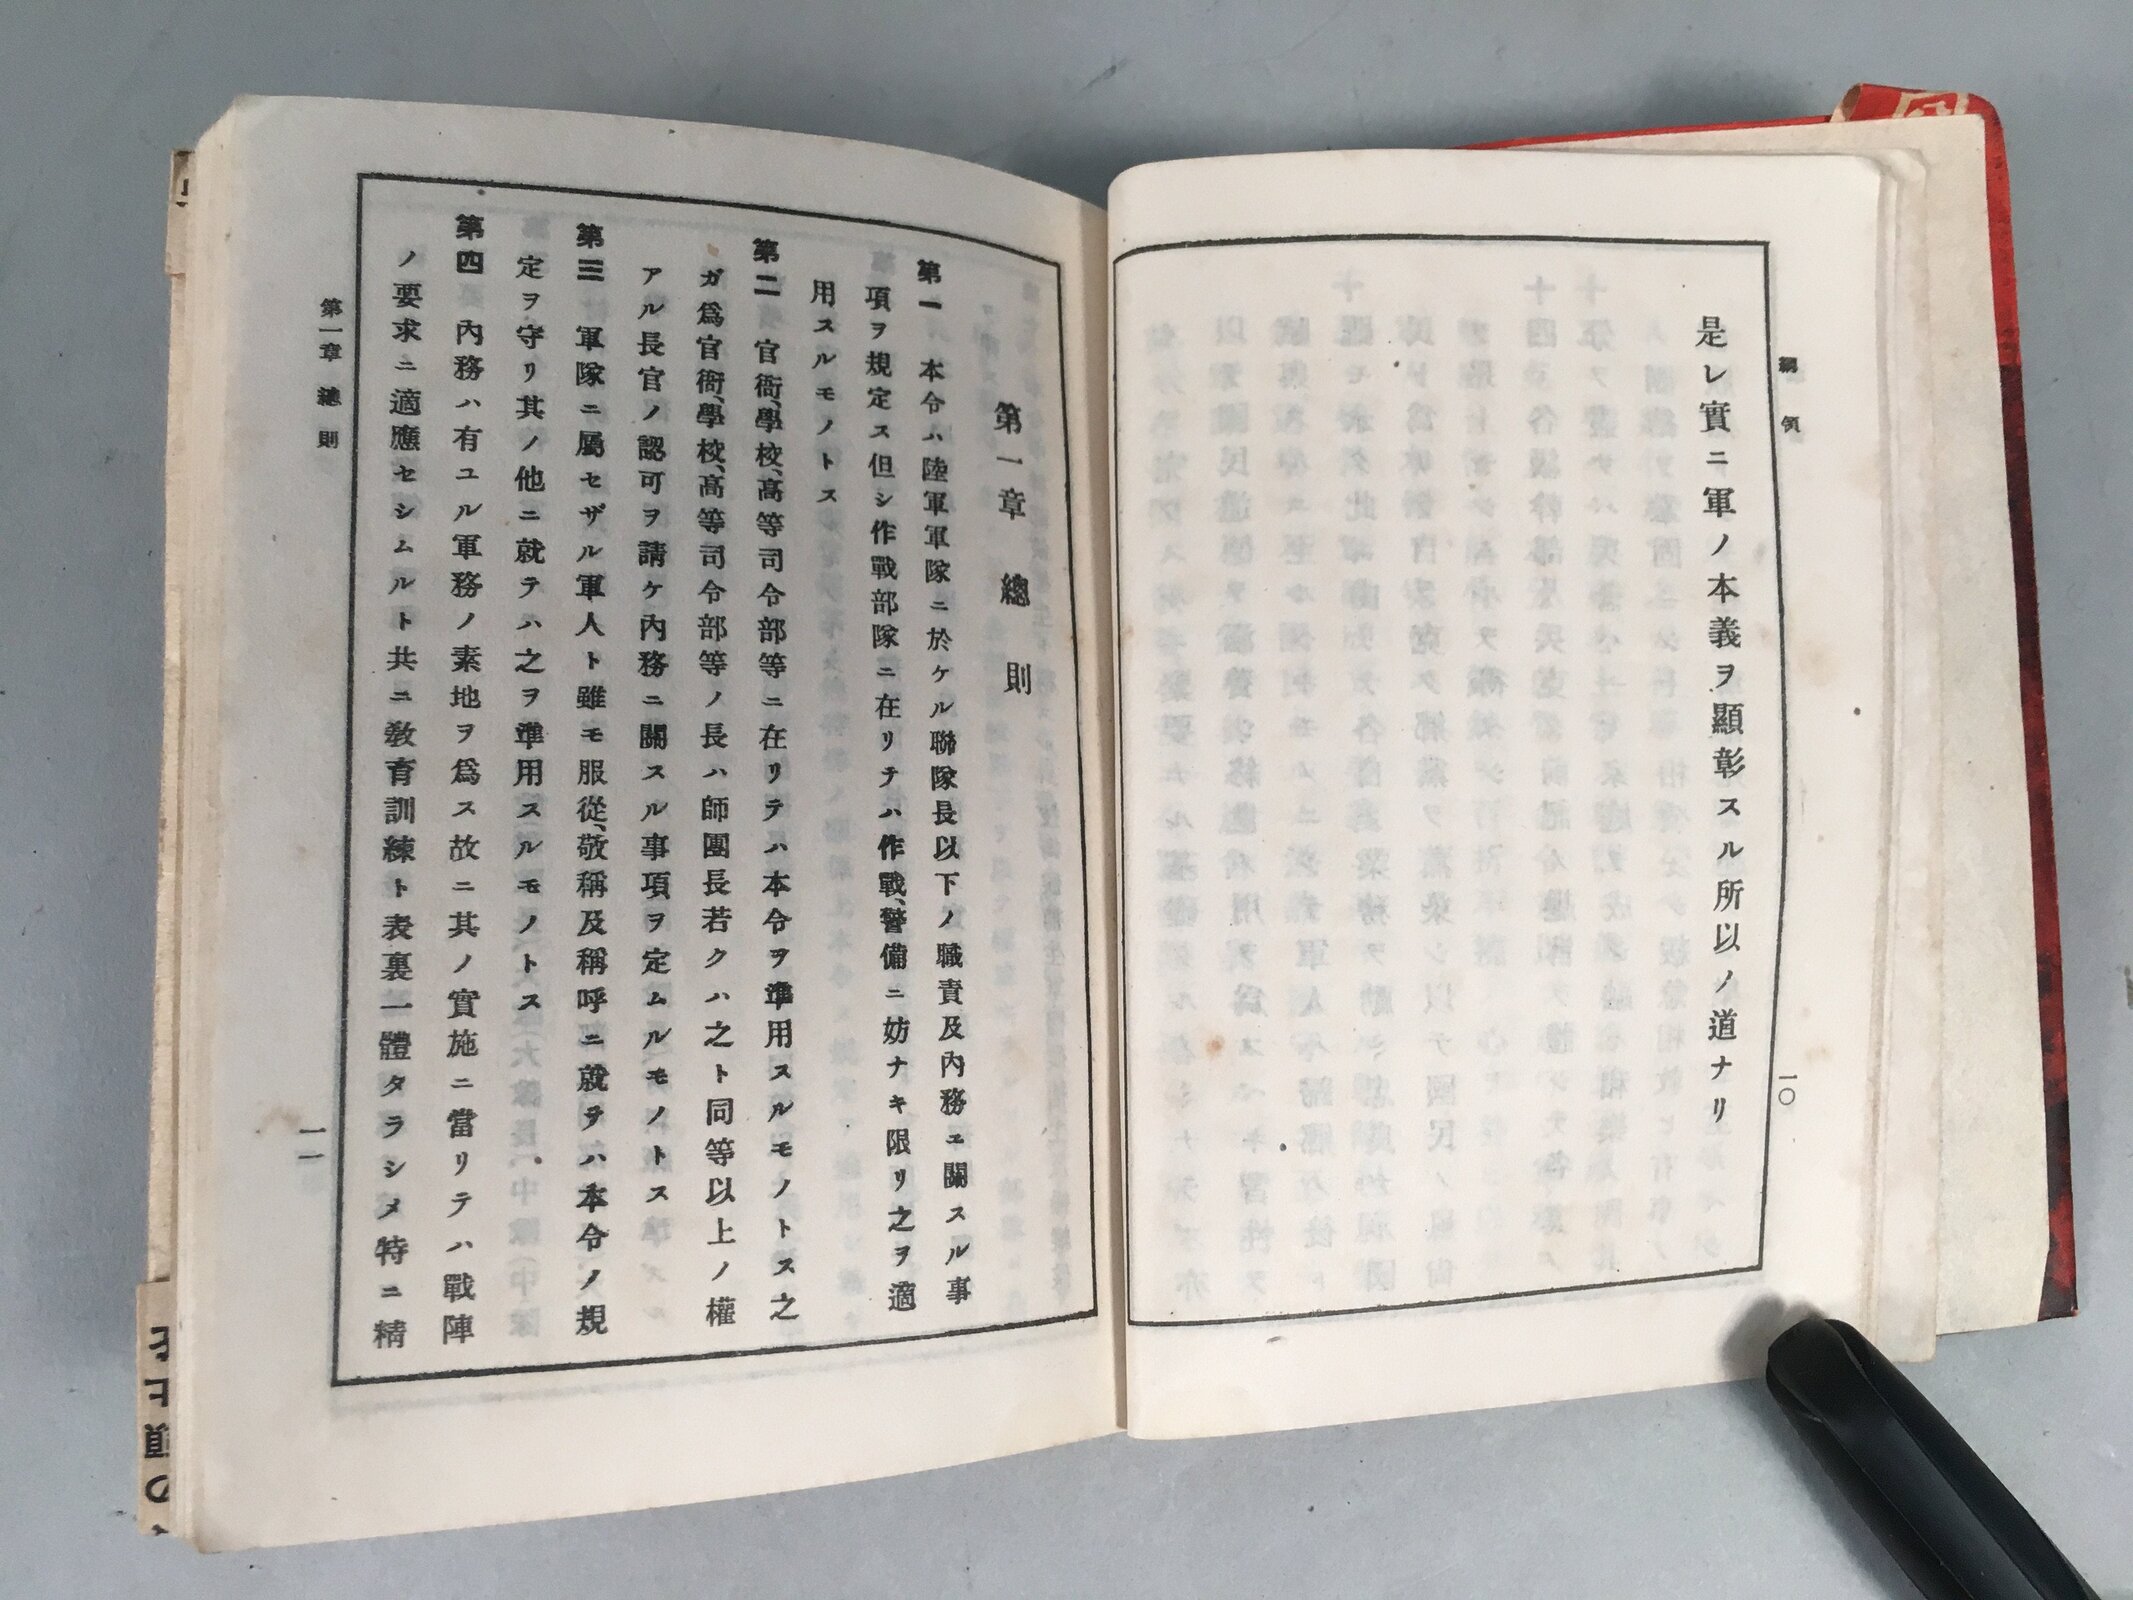 綱領
是レ實ニ軍ノ本義ヲ顯彰スル所以ノ道ナリ
一〇
第一章 總則
第一 本令ハ陸軍軍隊ニ於ケル聯隊長以下ノ職責及內務ニ關スル事
項ヲ規定ス但シ作戰部隊ニ在リテハ作戰、警備ニ妨ナキ限リ之ヲ適
用スルモノトス
第二 官衙、學校、高等司令部等ニ在リテハ本令ヲ準用スルモノトス之
ガ爲官衙、學校、高等司令部等ノ長ハ師團長若クハ之ト同等以上ノ權
アル長官ノ認可ヲ請ケ內務ニ關スル事項ヲ定ムルモノトス
第三 軍隊ニ屬セザル軍人ト雖モ服從、敬稱及稱呼ニ就テハ本令ノ規
定ヲ守リ其ノ他ニ就テハ之ヲ準用スルモノトス
第四 內務ハ有ユル軍務ノ素地ヲ爲ス故ニ其ノ實施ニ當リテハ戰陣
ノ要求ニ適應セシムルト共ニ敎育訓練ト表裏一體タラシメ特ニ精
第一章 總則
一一